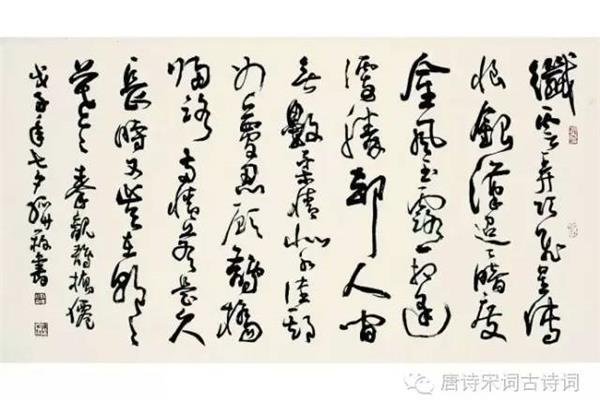 纖雲弄巧飛星傳
恨銀漢迢〻暗度
金風玉露一相逢
便勝卻人間
無數柔情似水佳期
如夢忍顧鵲橋
歸路兩情若是久
長時又豈在朝〻
暮〻 秦觀鵲橋仙
戊子年七夕書
唐诗宋词古诗词